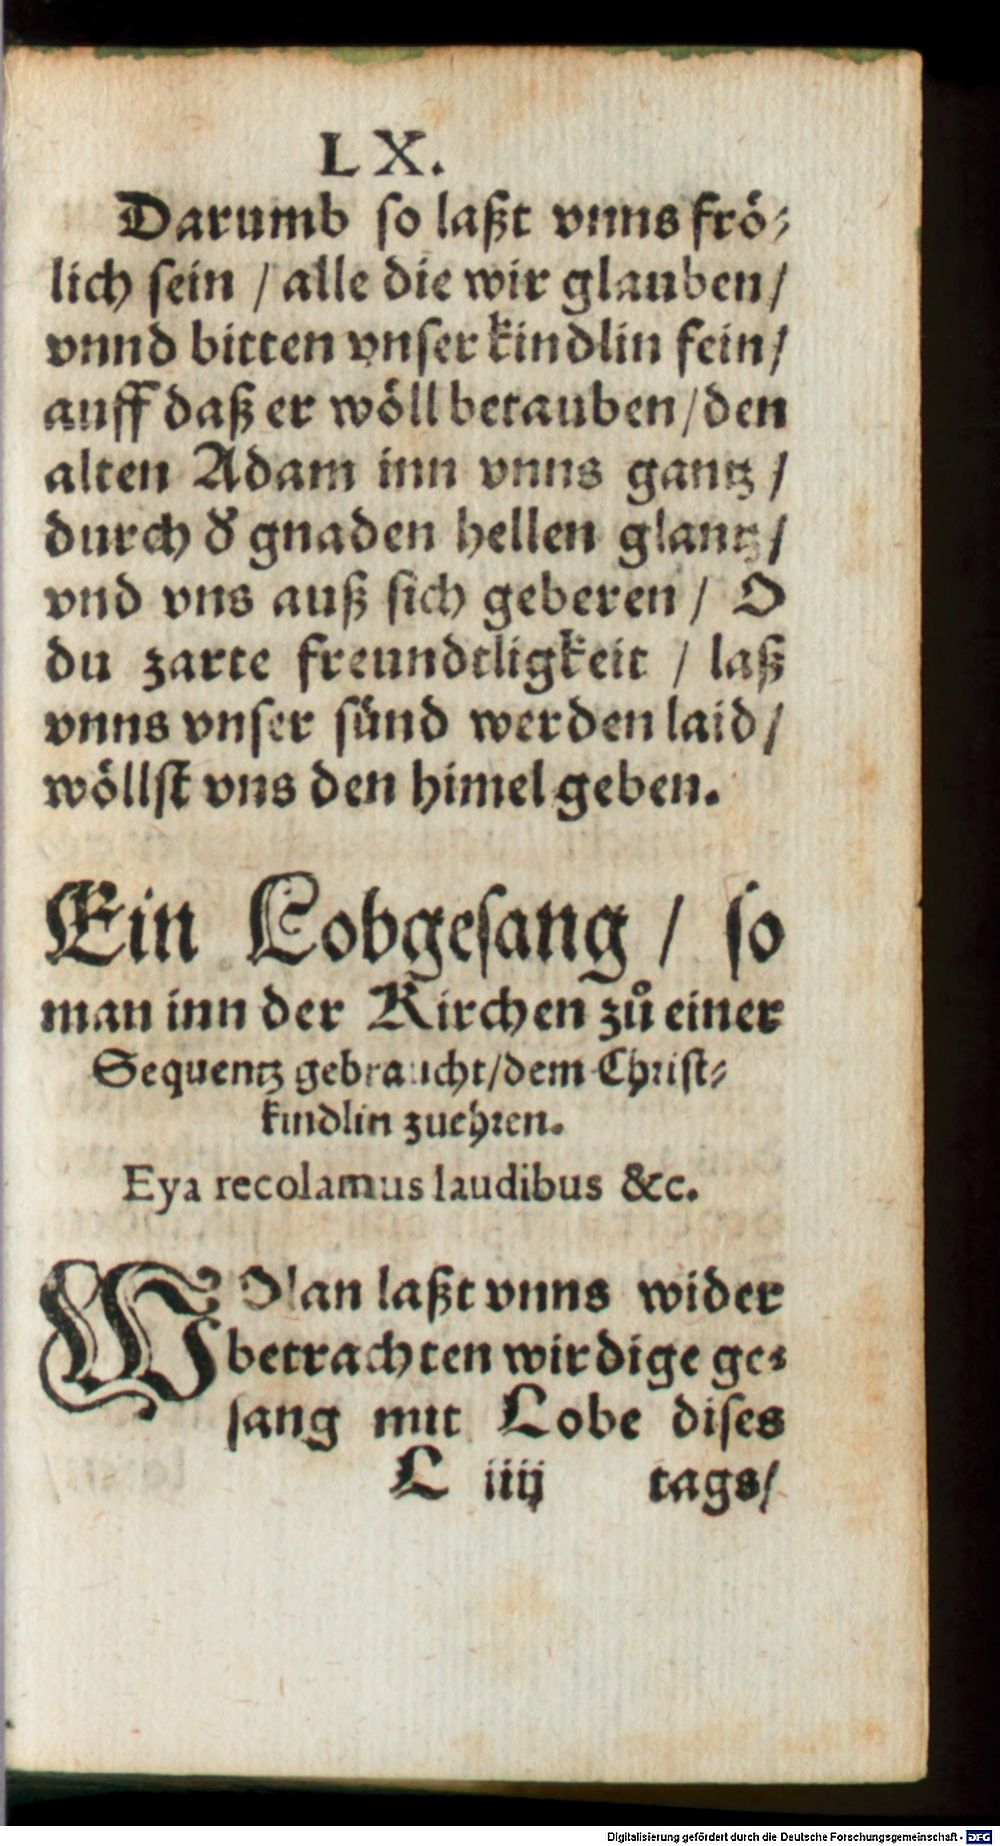 LX.
Darumb so laßt vnns frö⸗
lich sein / alle die wir glauben /
vnnd bitten vnser kindlin fein /
auff daß er wöll betauben / den
alten Adam inn vnns gantz /
durch d̕ gnaden hellen glantz /
vnd vns auß sich geberen / O
du zarte freundtligkeit / laß
vnns vnser sünd werden laid /
wöllst vns den himel geben.
Ein Lobgesang / so
man inn der Kirchen zuͦ einer
Sequentz gebraucht / dem Christ⸗
kindlin zuehren.
Eya recolamus laudibus &c.
WOlan laßt vnns wider
betrachten wirdige ge⸗
sang mit Lobe dises
L iiij tags /
Digitalisierung gefördert durch die Deutsche Forschungsgemeinschaft - DFG